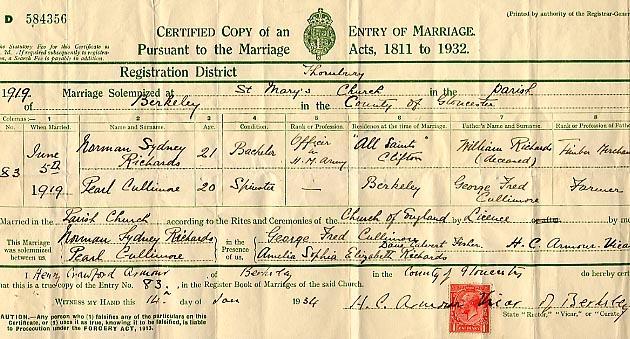 D 584356
(Printed by authority of the Registrar-Gener
CERTIFIED COPY of an ENTRY OF MARRIAGE.
Pursuant to the Marriage Acts, 1811 to 1932.
he Statutory Fee for this Certificate is
If required subsequently to registra-
n, a Search Fee is payable in addition.
Registration District Thornbury
1919. Marriage Solemnized at St Mary's Church in the Parish
of Berkeley in the County of Gloucester
Columns:— 1 2 3 4 5 6 7 8
No. When Married. Name and Surname. Age. Condition. Rank or Profession. Residence at the time of Marriage. Father's Name and Surname. Rank or Profession of Father
83 June 5th 1919 Norman Sydney Richards 21 Bachelor Officer in H.M. Army "All Saints" Clifton William Richards (deceased) Merchan
Pearl Cullimore 20 Spinster — Berkeley George Fred Cullimore Farmer
Married in the Parish Church according to the Rites and Ceremonies of the Church of England by Licence or after by me
This Marriage was solemnized between us Norman Sydney Richards Pearl Cullimore in the Presence of us George Fred Cullimore Amelia Sophia Elizabeth Richards H. C. Armour. Vicar
I Henry Crawford Armour of Berkeley in the County of Gloucester do hereby certi
hat this is a true copy of the Entry No. 83, in the Register Book of Marriages of the said Church.
WITNESS MY HAND this 14th day of Jan 1934 H. C. Armour Vicar of Berkeley
State "Rector," "Vicar," or "Curate,"
AUTION.—Any person who (1) falsifies any of the particulars on this
Certificate, or (2) uses it as true, knowing it to be falsified, is liable
to Prosecution under the FORGERY ACT, 1913.